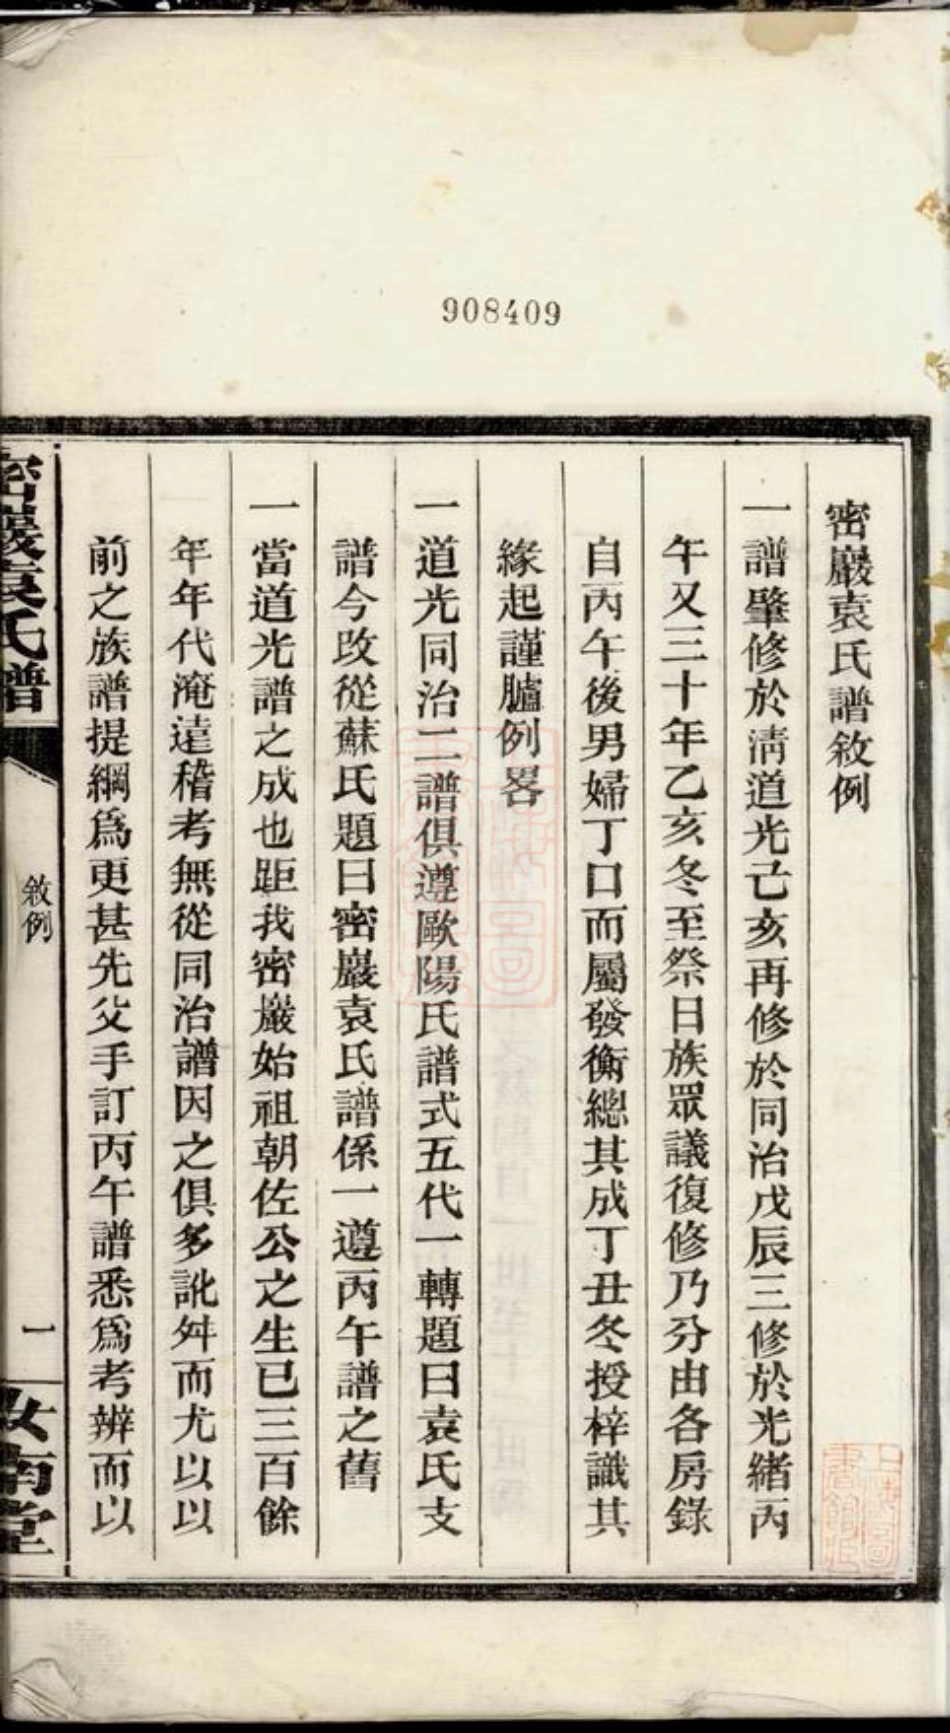 908409
密巖袁氏譜敘例
一譜肇修於淸道光己亥再修於同治戊辰三修於光緒丙
午又三十年乙亥冬至祭日族眾議復修乃分由各房錄
自丙午後男婦丁口而屬發衡總其成丁丑冬授梓識其
緣起謹臚例畧
一道光同治二譜俱遵歐陽氏譜式五代一轉題曰袁氏支
譜今改從蘇氏題曰密巖袁氏譜係一遵丙午譜之舊
一當道光譜之成也距我密巖始祖朝佐公之生已三百餘
年年代淹遠稽考無從同治譜因之俱多訛舛而尤以以
前之族譜提綱爲更甚先父手訂丙午譜悉爲考辨而以
密巖袁氏譜
敘例
一
汝南堂